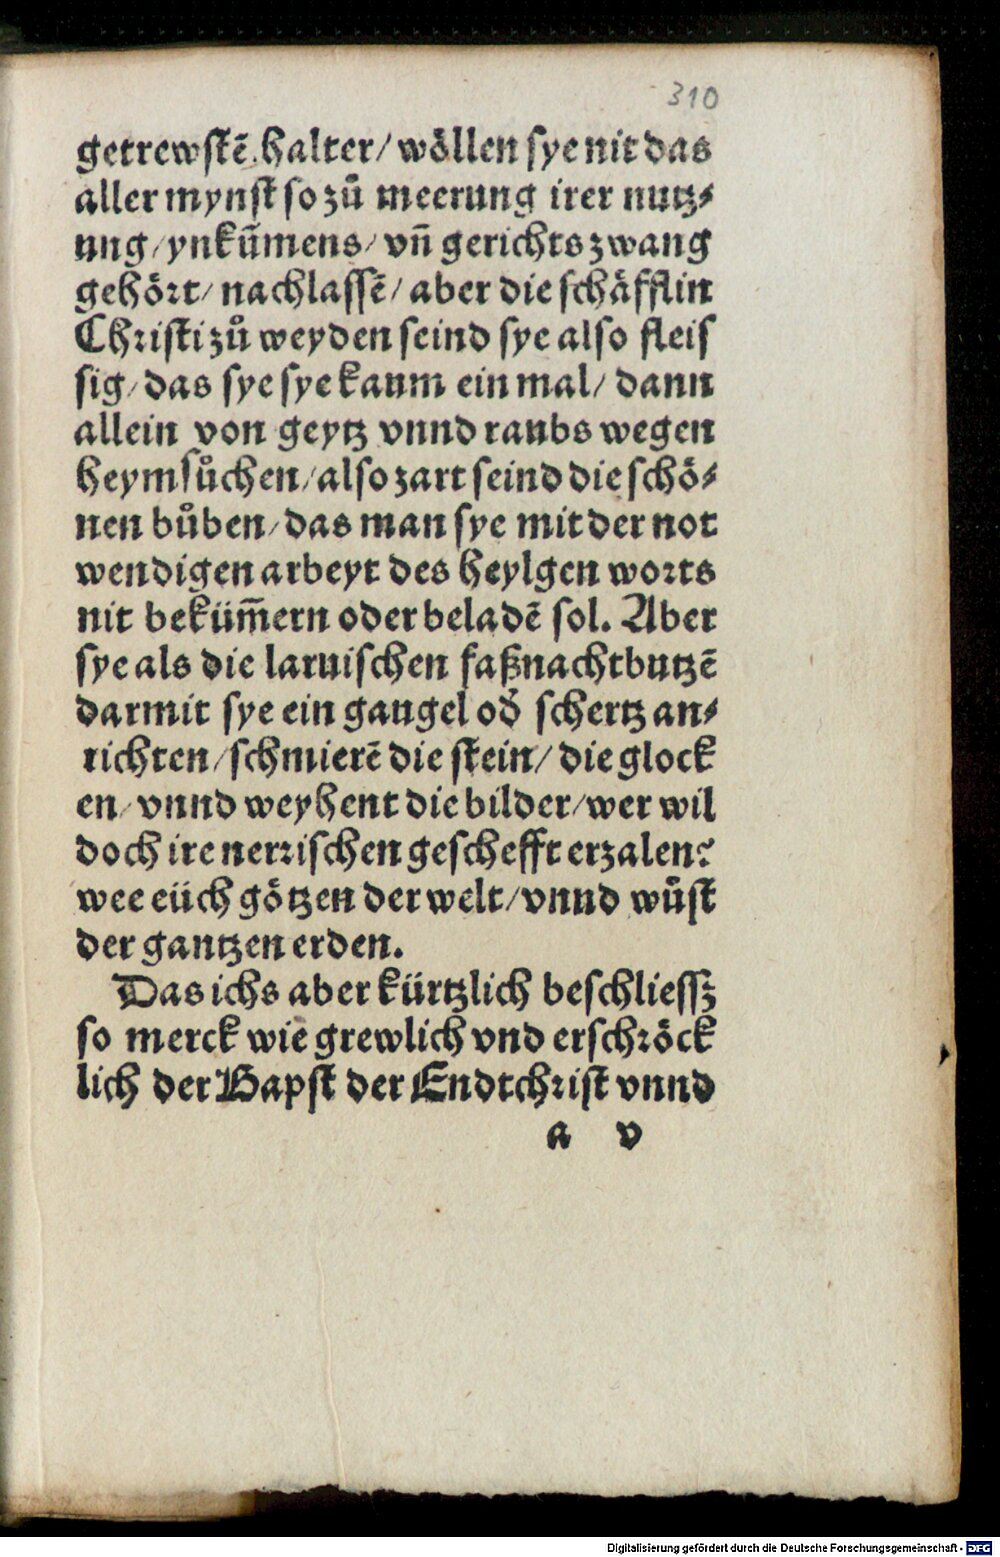 310
getrewstē halter/ wöllen sye nit das
aller mynst so zů meerung irer nutz⸗
ung/ ynkům̄ens/ vñ gerichts zwang
gehört/ nachlassē/ aber die schäfflin
Christi zů weyden seind sye also fleis
sig/ das sye sye kaum ein mal/ dann
allein von geytz vnnd raubs wegen
heymsůchen/ also zart seind die schö⸗
nen bůben/ das man sye mit der not
wendigen arbeyt des heylgen worts
nit beküm̄ern oder beladē sol. Aber
sye als die laruischen faßnachtbutzē
darmit sye ein gaugel od̕ schertz an⸗
richten/ schmierē die stein/ die glock
en/ vnnd weyhent die bilder/ wer wil
doch ire nerrischen geschefft erzalen?
wee eüch götzen der welt/ vnnd wůst
der gantzen erden.
Das ichs aber kürtzlich beschliessz
so merck wie grewlich vnd erschröck
lich der Bapst der Endtchrist vnnd
a v
Digitalisierung gefördert durch die Deutsche Forschungsgemeinschaft - DFG